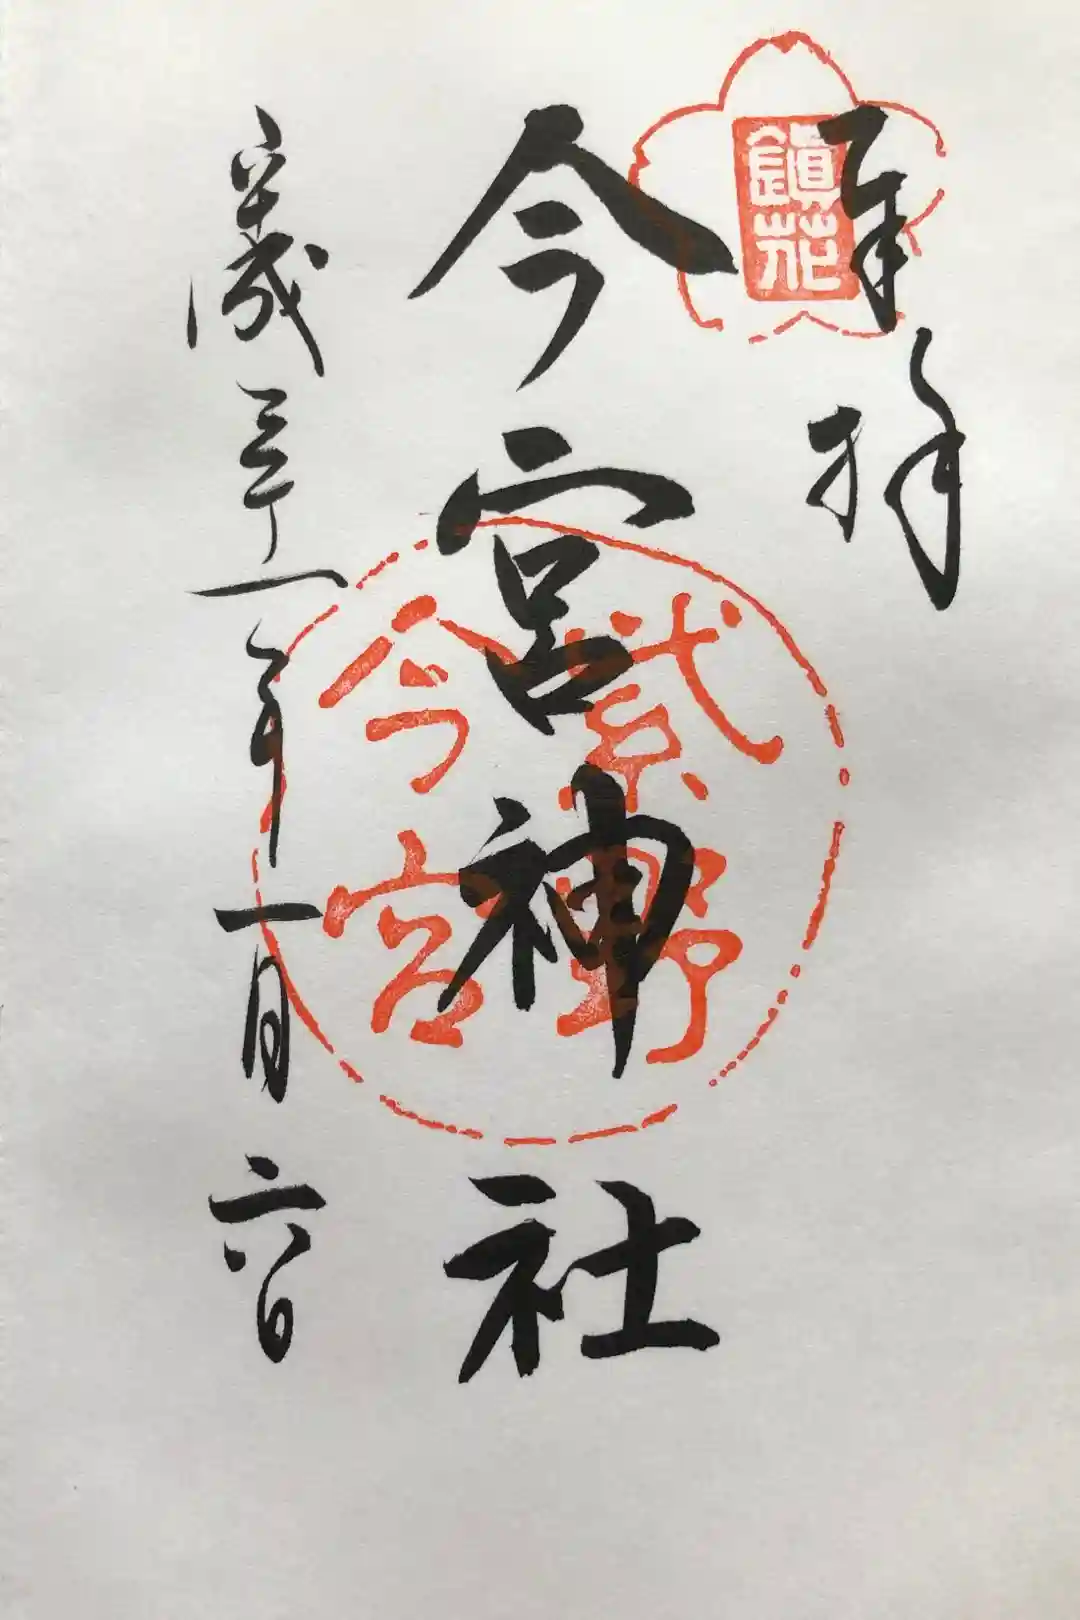 奉拝
鎮花
今宮神社
紫野
今宮
平成三十一年一月六日